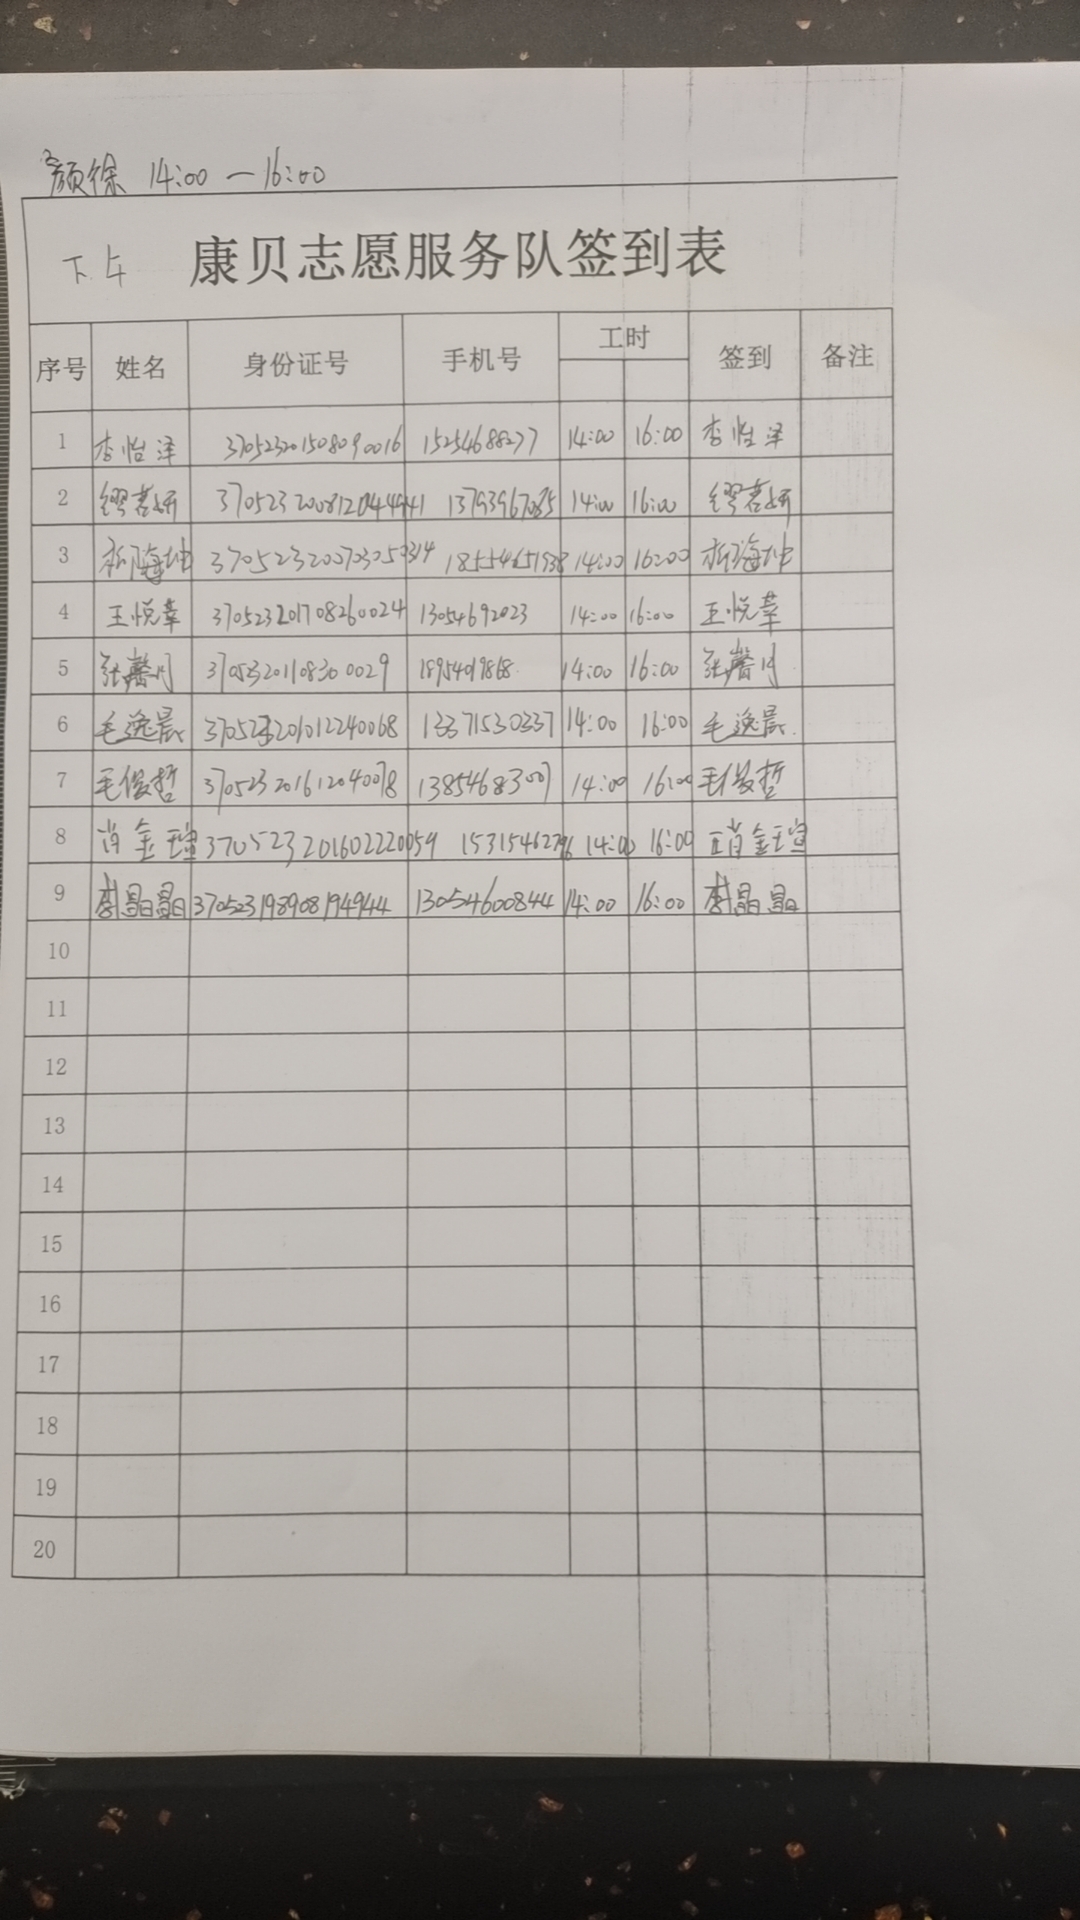 颜徐 14:00—16:00
下午 康贝志愿服务队签到表
序号 姓名 身份证号 手机号 工时 签到 备注
1 李怡泽 370523201508090016 15254688277 14:00 16:00 李怡泽
2 缪茗妍 370523200812044941 13793967085 14:00 16:00 缪茗妍
3 海坤 370523200703050314 18554651938 14:00 16:00 海坤
4 王悦莘 370523201708260024 13054692023 14:00 16:00 王悦莘
5 张馨月 370523201108300029 18954019868 14:00 16:00 张馨月
6 毛逸晨 370523201012240068 13371530337 14:00 16:00 毛逸晨
7 毛俊哲 370523201612040078 13854683007 14:00 16:00 毛俊哲
8 肖金瑄 370523201602220059 15315462796 14:00 16:00 肖金瑄
9 李晶晶 370523198908194944 13054600844 14:00 16:00 李晶晶
10
11
12
13
14
15
16
17
18
19
20